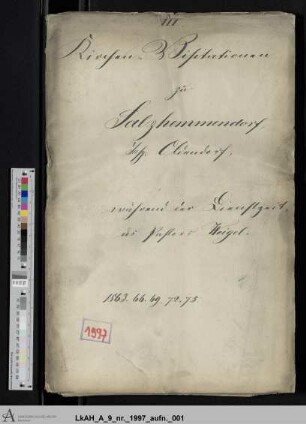 III
Kirchen-Visitationen
zu
Salzhemmendorf
Insp. Oldendorf.
während der Dienstzeit
des Pastors Weigel.
1863. 66. 69. 72. 75.
1997
LkAH_A_9_nr._1997_aufn._001